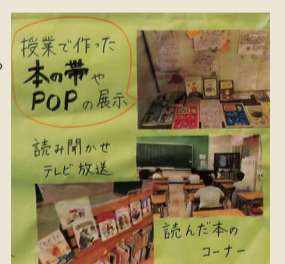 授業で作った
本の帯や
POPの展示
読み聞かせ
テレビ放送
読んだ本の
コーナー